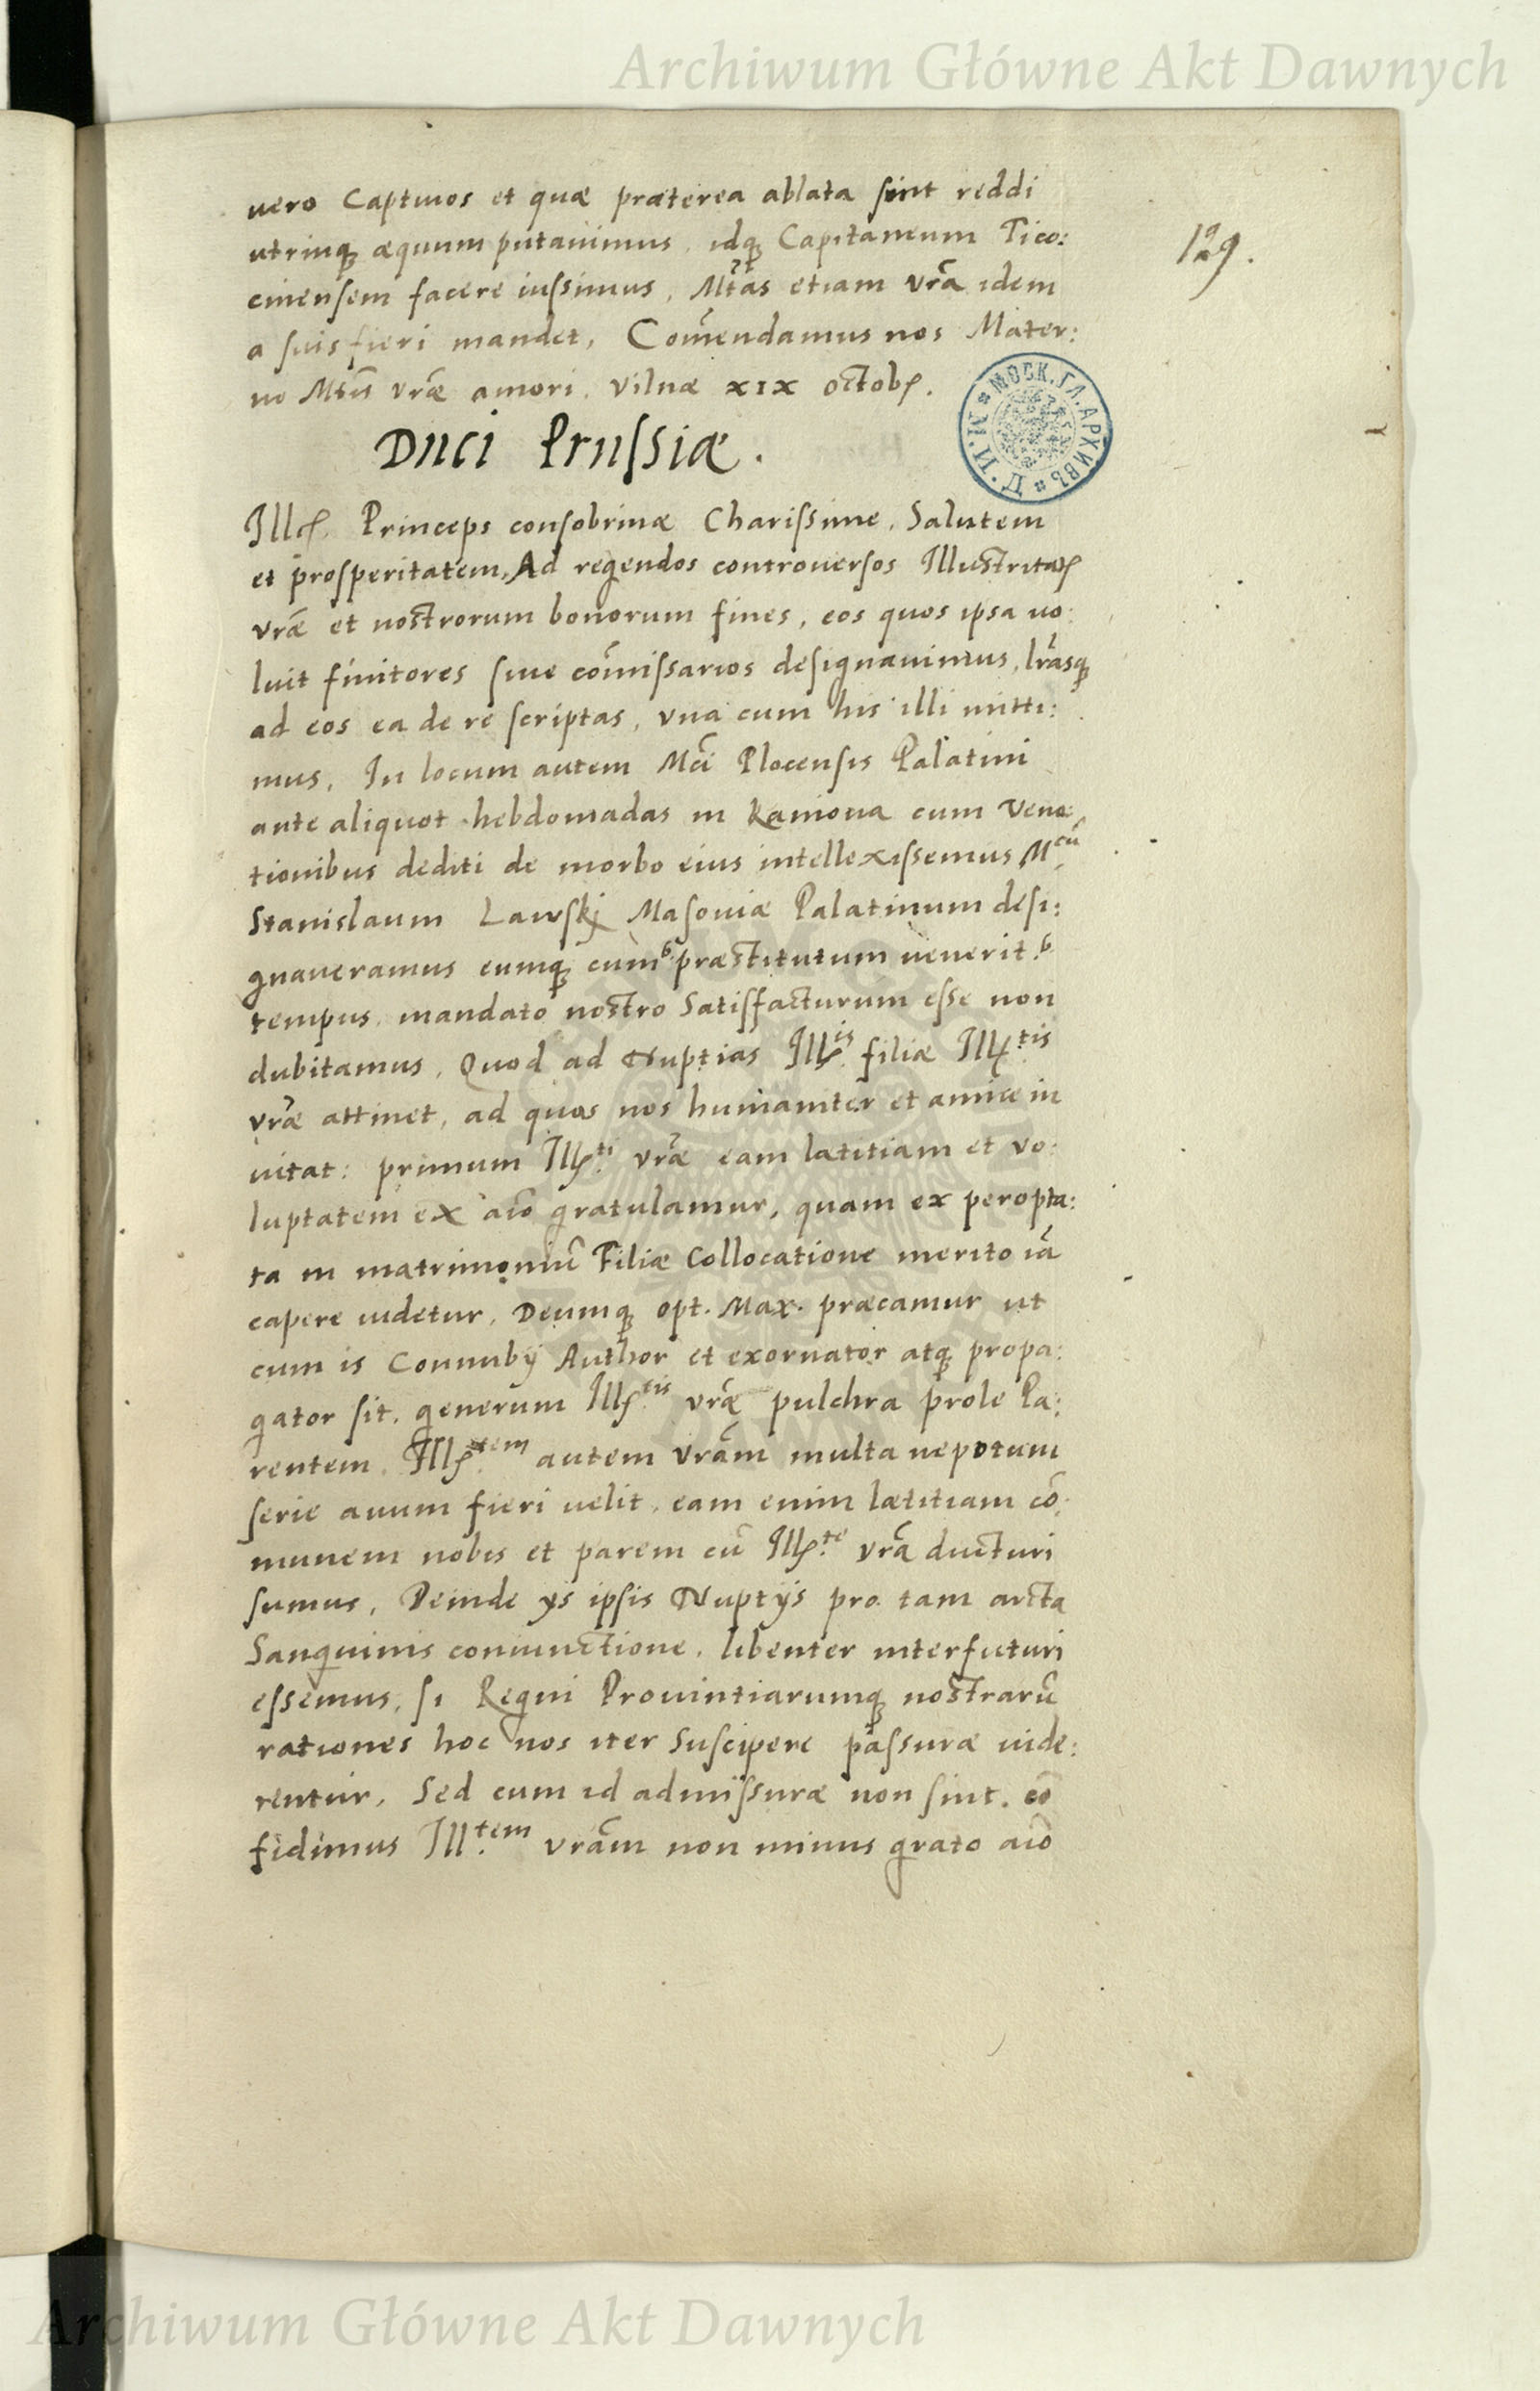 Archiwum Główne Akt Dawnych
129.
uero Captiuos et quæ præterea ablata sint reddi
utrinq; æquum putauimus, idq; Capitaneum Tico:
cinensem facere iussimus, Mtas etiam vrã idem
a suis fieri mandet, Com̃endamus nos Mater:
no Mtis vræ amori. Vilnæ XIX octob.
МОСК. ГЛ. АРХИВЪ М. И. Д.
Duci Prussiæ.
Ill. Princeps consobrinæ Charissime, Salutem
et prosperitatem, Ad regendos controuersos Illustritat
vræ et nostrorum bonorum fines, eos quos ipsa uo:
luit finitores siue com̃issarios designauimus, lr̃asq;
ad eos ea de re scriptas, vna cum his illi mitti:
mus, In locum autem Mci Plocensis Palatini
ante aliquot hebdomadas in Kamoua cum Vena:
tionibus dediti de morbo eius intellexissemus M.cũ
Stanislaum Lawskj Masouiæ Palatinum desi:
gnaueramus eumq; cum præstitutum uenerit
tempus, mandato nostro Satisfacturum esse non
dubitamus, Quod ad Nuptias Ill.is filiæ Ill.tis
vræ attinet, ad quas nos humaniter et amice in
uitat: primum Ill.ti vræ eam lætitiam et vo:
luptatem ex aĩo gratulamur, quam ex peropta:
ta in matrimoniũ Filiæ Collocatione merito iã
capere uidetur, Deumq; opt. Max. præcamur ut
cum is Connubij Author et exornator atq; propa:
gator sit, generum Ill.tis vræ pulchra prole Pa:
rentem, Ill.tem autem vrãm multa nepotum
serie auum fieri uelit, eam enim lætitiam cõ:
munem nobis et parem cũ Ill.te vrã ducturi
sumus, Deinde ys ipsis Nuptijs pro tam arcta
Sanguinis coniunctione, libenter interfuturi
essemus, si Regni Prouintiarumq; nostrarũ
rationes hoc nos iter Suscipere passuræ uide:
rentur, Sed cum id admissuræ non sint, cõ
fidimus Ill.tem vrãm non minus grato aĩo
Archiwum Główne Akt Dawnych